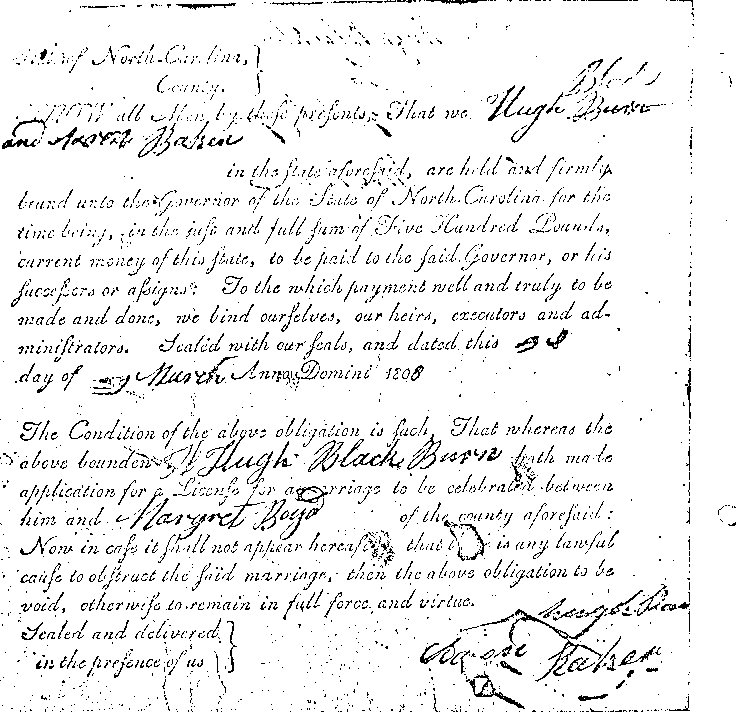 of North-Carolina,
County.
all Men by these presents, That we Hugh Black Burn
and Aaron Baker
in the state aforesaid, are held and firmly
bound unto the Governor of the State of North-Carolina for the
time being, in the just and full sum of Five Hundred Pounds,
current money of this state, to be paid to the said Governor, or his
successors or assigns: To the which payment well and truly to be
made and done, we bind ourselves, our heirs, executors and ad-
ministrators. Sealed with our seals, and dated this 28
day of March Anno Domini 1808
The Condition of the above obligation is such, That whereas the
above bounden Hugh Black Burn hath made
application for a License for a marriage to be celebrated between
him and Margret Boyd of the county aforesaid:
Now in case it shall not appear hereafter that is any lawful
cause to obstruct the said marriage, then the above obligation to be
void, otherwise to remain in full force and virtue.
Sealed and delivered
in the presence of us
Aaron Baker